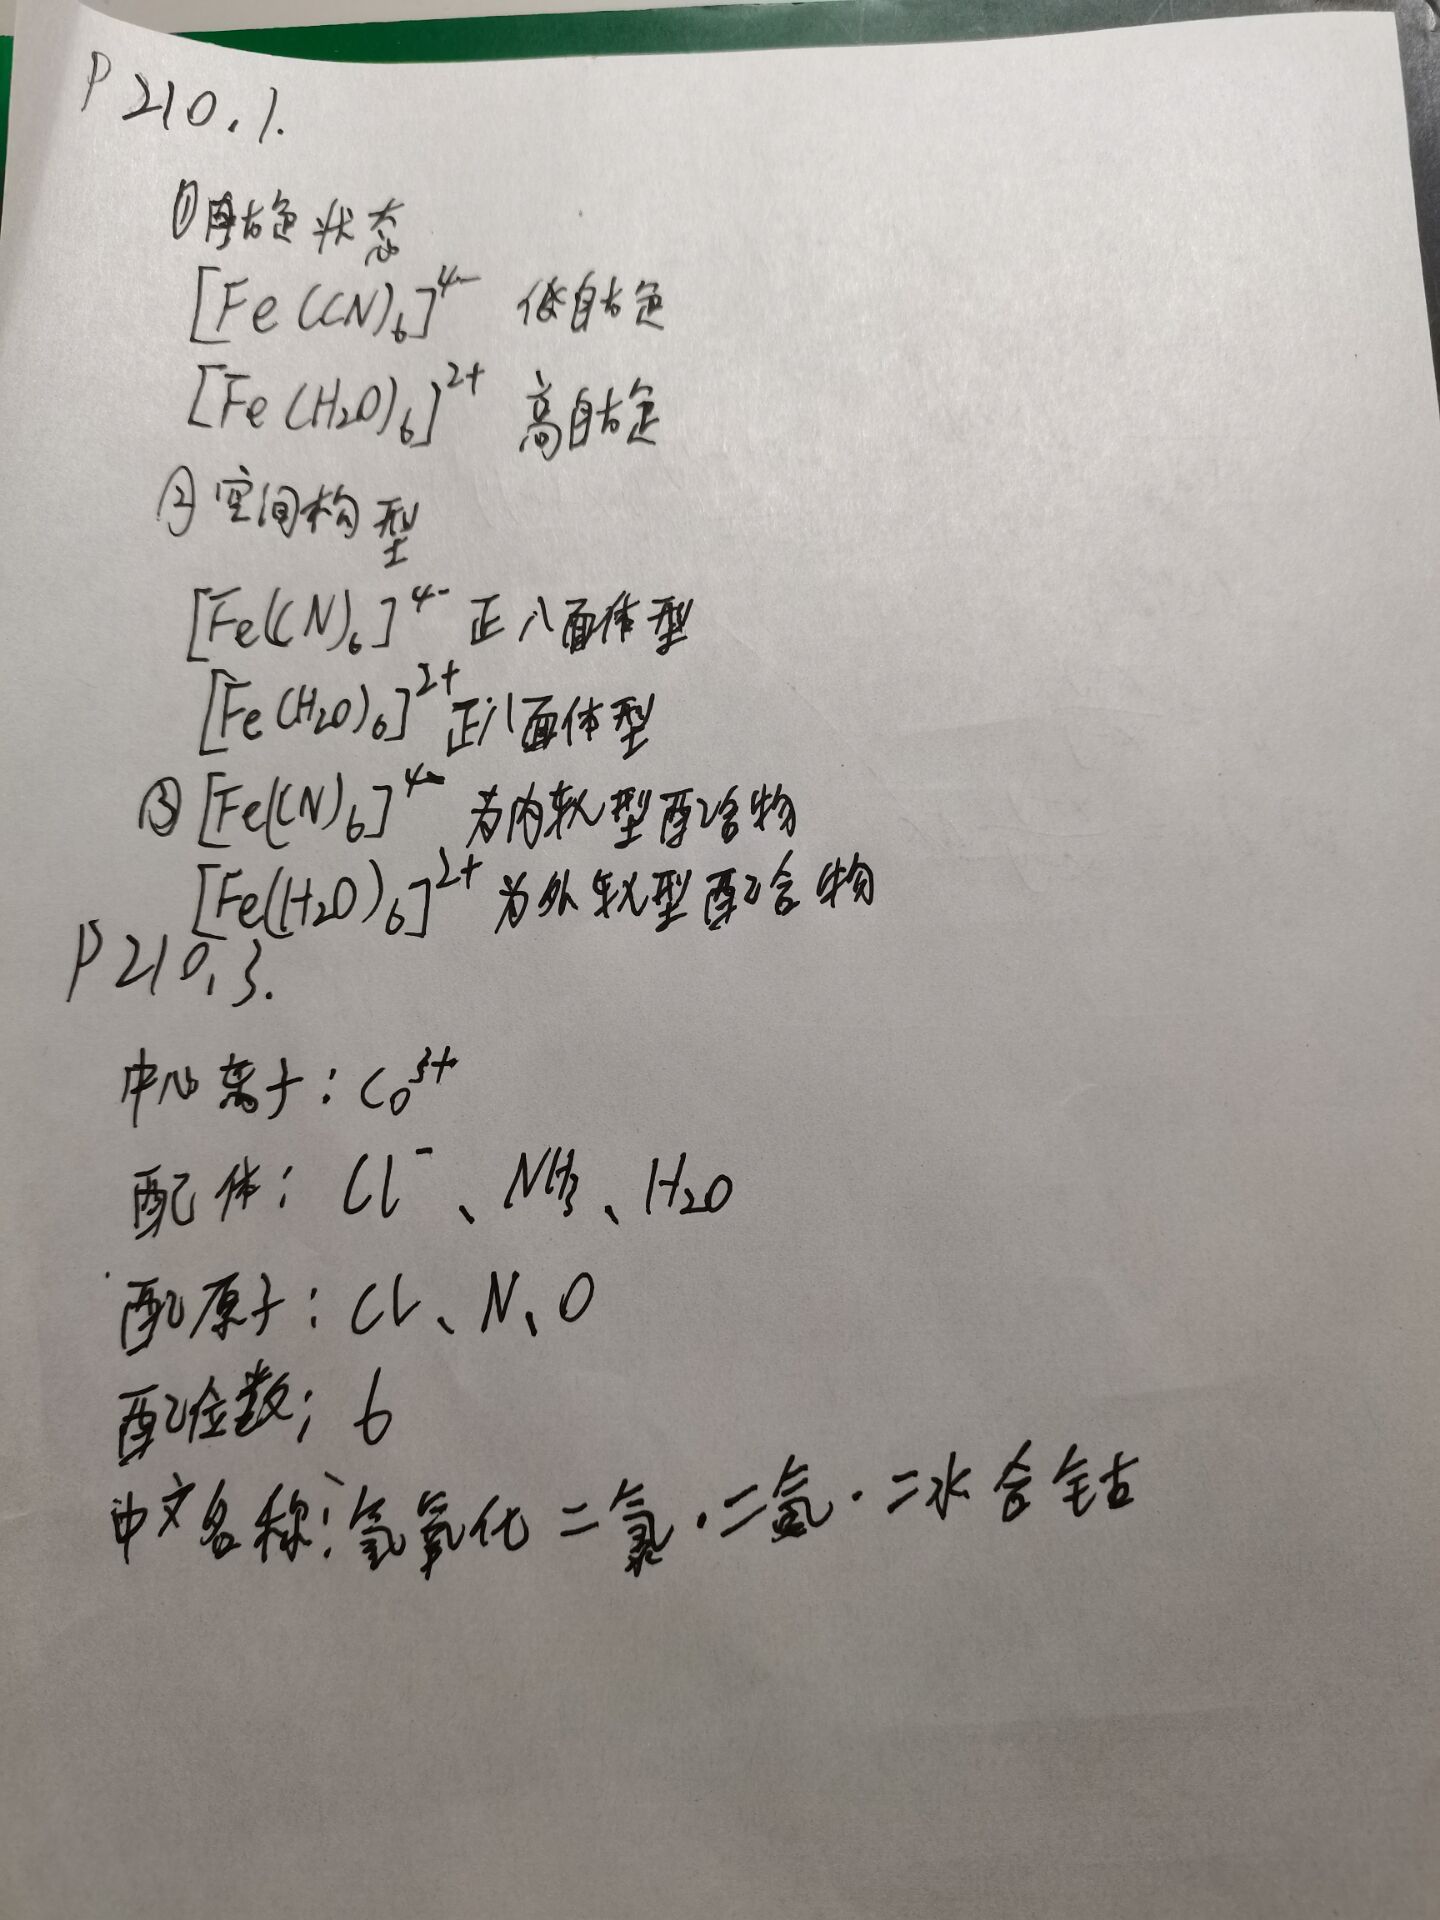 P210.1.
①自旋状态
[Fe(CN)₆]⁴⁻ 低自旋
[Fe(H₂O)₆]²⁺ 高自旋
②空间构型
[Fe(CN)₆]⁴⁻ 正八面体型
[Fe(H₂O)₆]²⁺ 正八面体型
③[Fe(CN)₆]⁴⁻ 为内轨型配合物
[Fe(H₂O)₆]²⁺ 为外轨型配合物
P210.3.
中心离子：Co³⁺
配体：Cl⁻、NH₃、H₂O
配原子：Cl、N、O
配位数：6
中文名称：氢氧化二氯·二氨·二水合钴